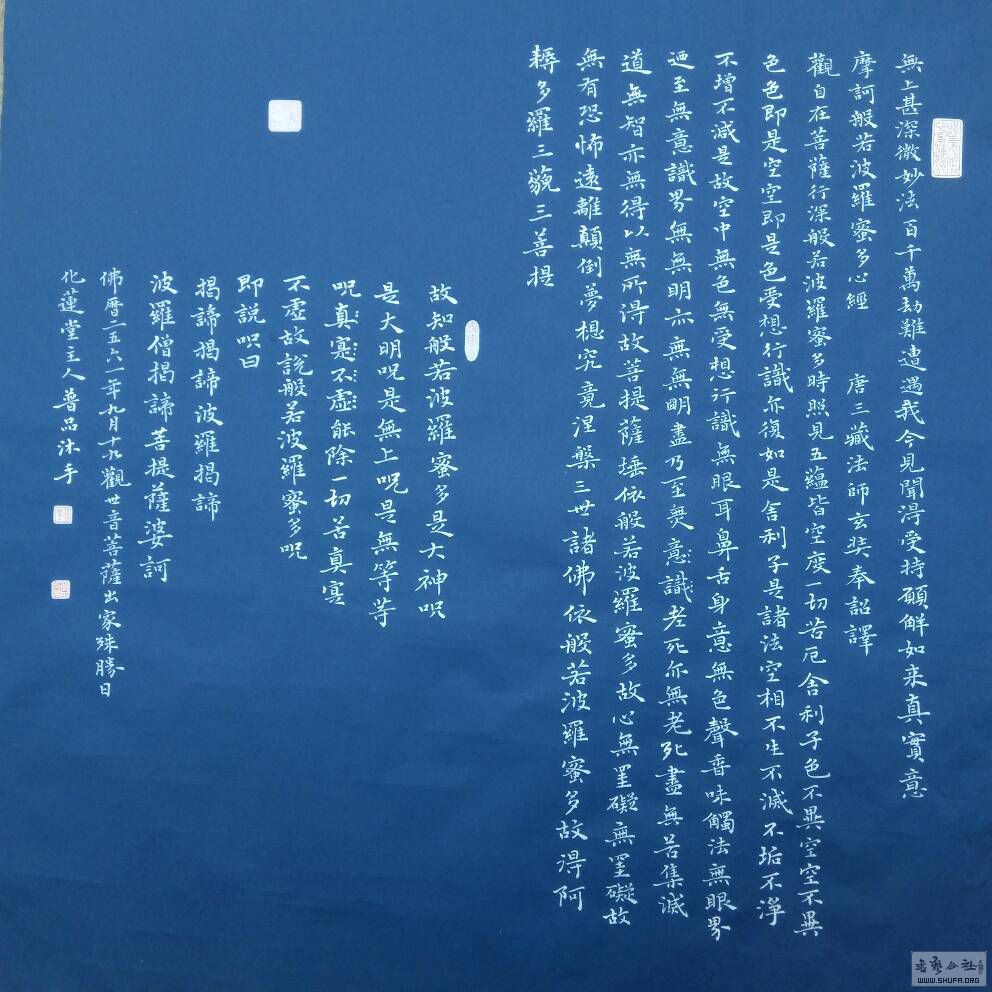 無上甚深微妙法百千萬劫難遭遇我今見聞得受持願解如来真實意
摩訶般若波羅蜜多心經 唐三藏法師玄奘奉詔譯
觀自在菩薩行深般若波羅蜜多時照見五蘊皆空度一切苦厄舍利子色不異空空不異
色色即是空空即是色受想行識亦復如是舍利子是諸法空相不生不滅不垢不淨
不增不減是故空中無色無受想行識無眼耳鼻舌身意無色聲香味觸法無眼界
迺至無意識界無無明亦無無明盡乃至無意識老死亦無老死盡無苦集滅
道無智亦無得以無所得故菩提薩埵依般若波羅蜜多故心無罣礙無罣礙故
無有恐怖遠離顛倒夢想究竟涅槃三世諸佛依般若波羅蜜多故得阿
耨多羅三藐三菩提
故知般若波羅蜜多是大神呪
是大明呪是無上呪是無等等
呪真寔不虛能除一切苦真寔
不虛故說般若波羅蜜多呪
即說呪曰
揭諦揭諦波羅揭諦
波羅僧揭諦菩提薩婆訶
佛曆二五六一年九月十九觀世音菩薩出家殊勝日
化蓮堂主人普品沐手
書藝公社
WWW.SHUFA.ORG